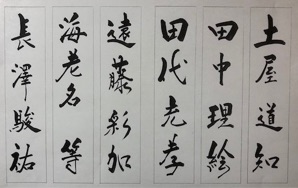 土屋道知
田中現絵
田代光孝
遠藤彩加
海老名 等
長澤駿祐